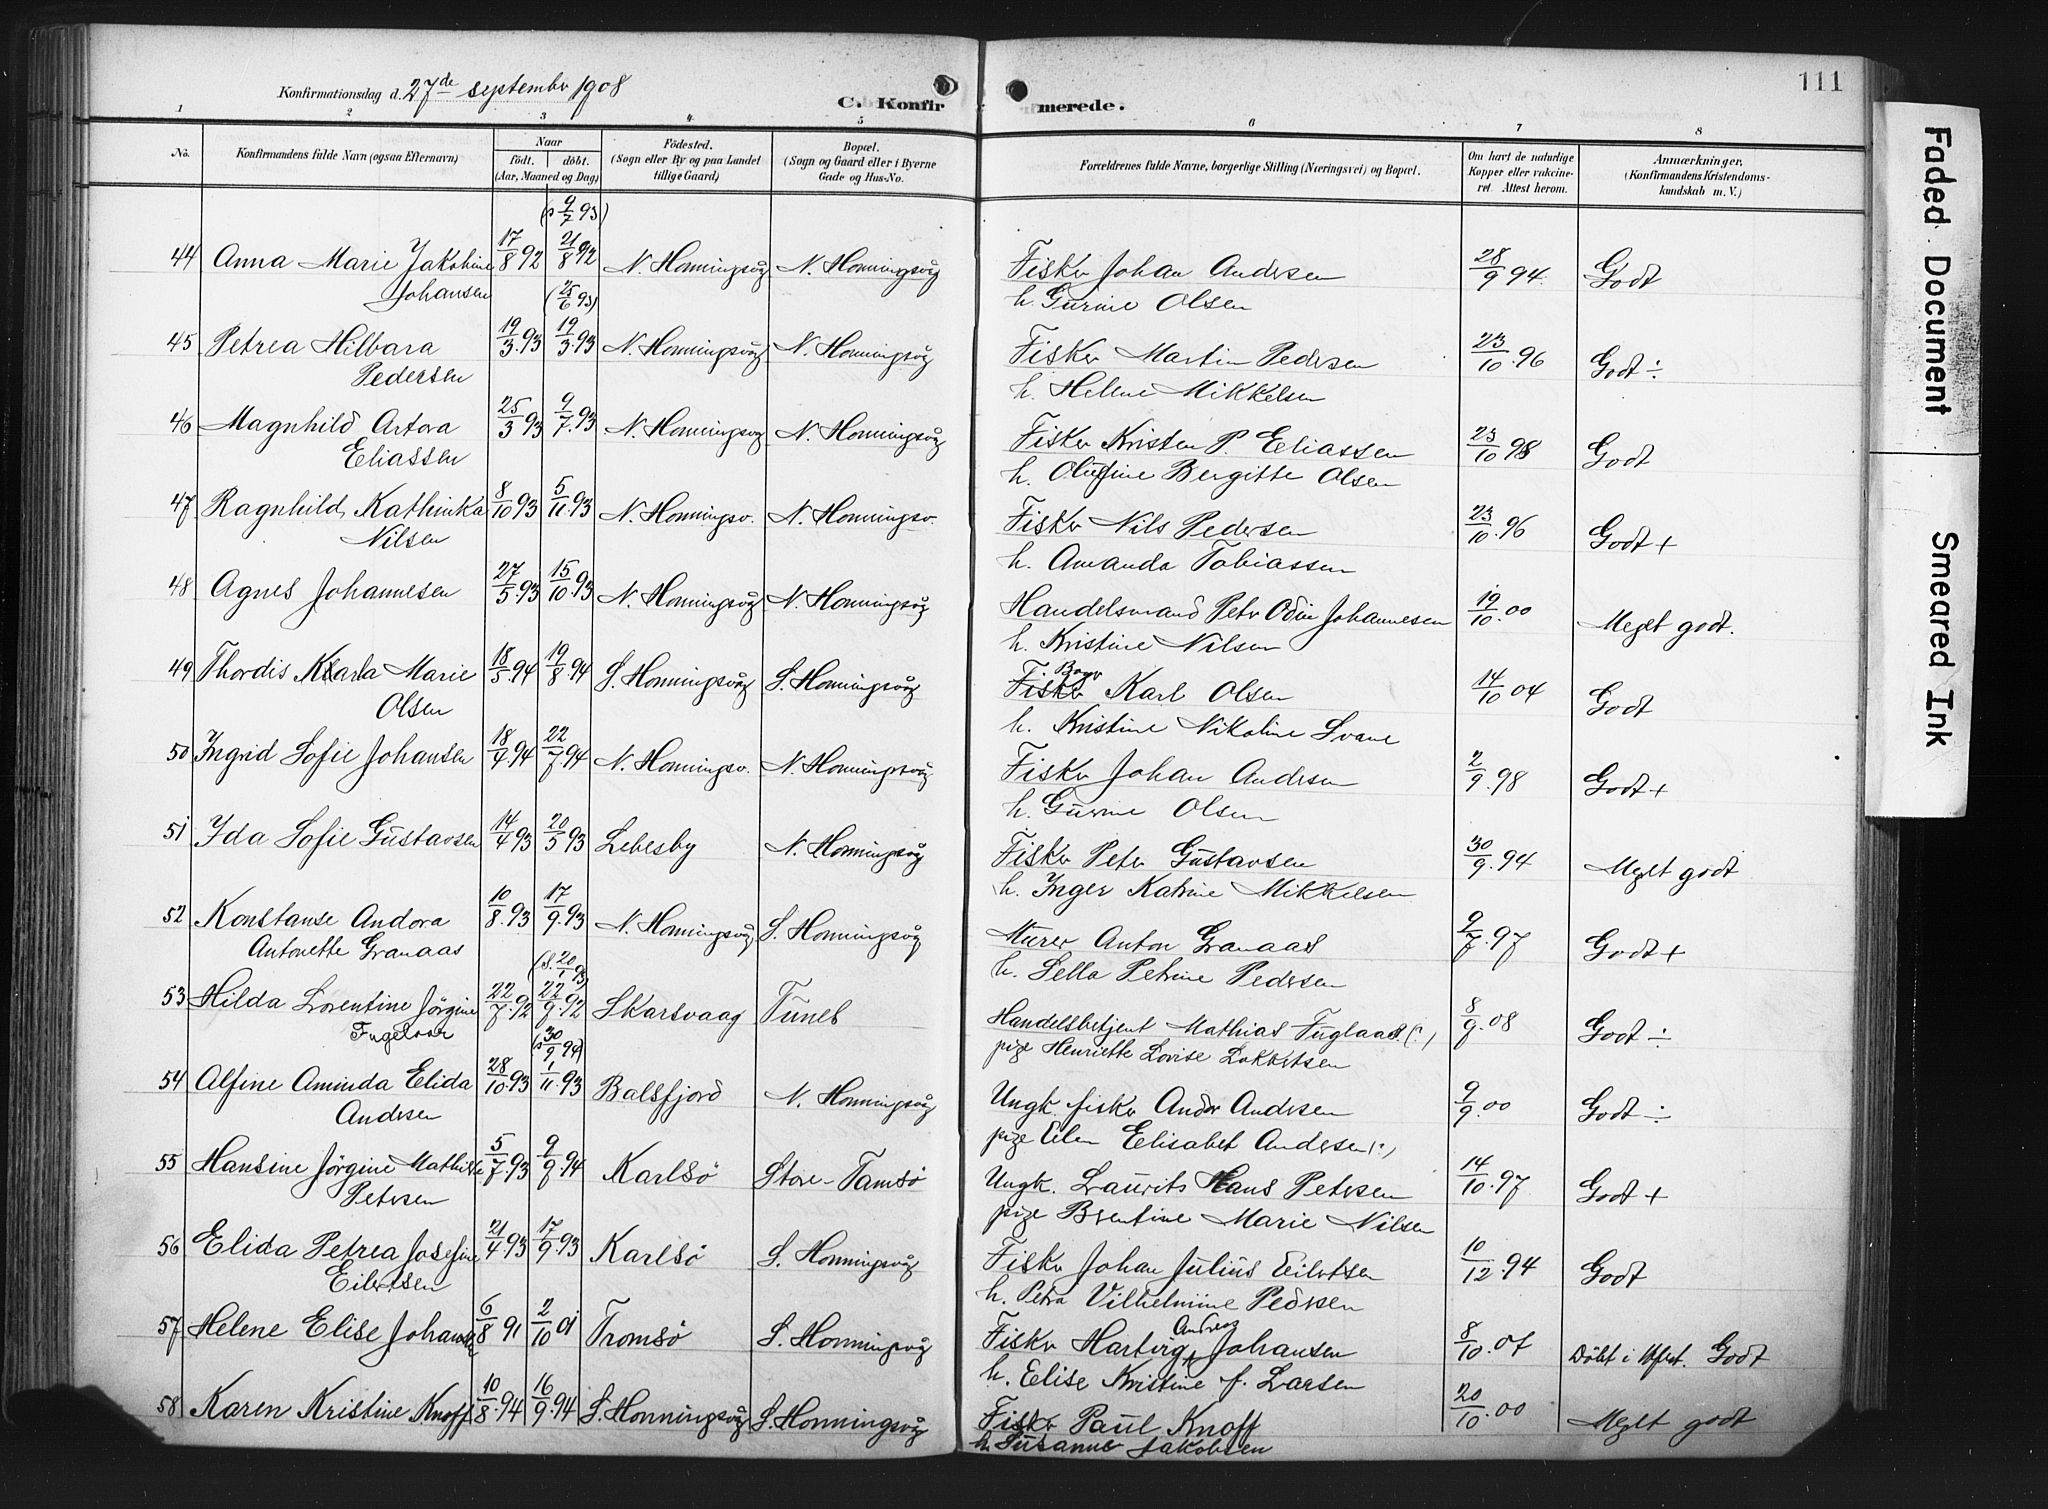 Konfirmationsdag d. 27de september 1908
C. Konfirmerede.
111
1 2 3 4 5 6 7 8
No.
Konfirmandens fulde Navn (ogsaa Efternavn)
Naar
født. døbt.
(Aar, Maaned og Dag)
Fødested.
(Sogn eller By og paa Landet
tillige Gaard)
Bopæl.
(Sogn og Gaard eller i Byerne
Gade og Hus-No.
Forældrenes fulde Navne, borgerlige Stilling (Næringsvei) og Bopæl.
Om havt de naturlige
Kopper eller vakcine-
ret. Attest herom.
Anmærkninger.
(Konfirmandens Kristendoms-
kundskab m. V.)
(s 9/7 93)
44 Anna Marie Jakobine 17/8 92 21/8 92 N. Honningsvåg N. Honningsvåg Fisker Johan Andersen 28/9 94. Godt
Johansen (25/6 93) h. Gurine Olsen
45 Petrea Hilbara 19/3. 93 19/3. 93 N. Honningsvåg N. Honningsvåg Fisker Martin Pedersen 23/10 96 Godt ÷
Pedersen h. Helene Mikkelsen
46 Magnhild Artora 25/3 93 9/7. 93 N. Honningsvåg N. Honningsvåg Fisker Kristen P. Eliassen 23/10 98 Godt
Eliassen h. Oluffine Bergitte Olsen
47 Ragnhild Kathinka 8/10 93 5/11. 93 N. Honningsv. N. Honningsv. Fisker Nils Pedersen 23/10. 96 Godt +
Nilsen h. Amanda Tobiassen
48 Agnes Johannesen 27/5. 93 15/10. 93 N. Honningsvåg N. Honningsvåg Handelsmand Petr Odin Johannesen 19/10. 00 Meget godt.
h. Kristine Nilsen
49 Thordis Karla Marie 18/5. 94 19/8. 94 S. Honningsvåg S. Honningsvåg Fisker Karl Olsen 14/10 04 Godt
Olsen h. Kristine Nikoline Svane
50 Ingrid Sofie Johansen 18/4. 94 22/7. 94 N. Honningsv. N. Honningsvåg Fisker Johan Andersen 2/9. 98 Godt +
h. Gurine Olsen
51 Ida Sofie Gustavsen 14/4 93 20/5 93 Lebesby N. Honningsvåg Fisker Peter Gustavsen 30/9. 94 Meget godt
h. Inger Katrine Mikkelsen
52 Konstanse Andora 10/8. 93 17/9. 93 N. Honningsvåg S. Honningsvåg Murer Anton Granaas 9/7. 97 Godt +
Antonette Granaas (s. 20/1 93) h. Sella Petrine Pedersen
53 Hilda Lorentine Jörgine 22/7. 92 22/9. 92 Skarsvaag Tunes Handelsbetjent Mathias Fuglaas (:) 8/9. 08 Godt ÷
(s 30/9 94) pige Henriette Lovise Lokkertsen
54 Alfine Aminda Elida 28/10. 93 1/11. 93 Balsfjord N. Honningsvåg Ungk. fisker Ander Andersen 9/9. 00 Godt ÷
Andersen pige Elen Elisabet Andersen (:)
55 Hansine Jörgine Mathilde 5/7. 93 9/9. 94 Karlsö Store-Tamsö Ungk. Laurits Hans Petersen 14/10. 97 Godt +
Petersen pige Berntine Marie Nilsen
56 Elida Petrea Josefine 21/4 93 17/9. 93 Karlsö S. Honningsvåg Fisker Johan Julius Eilertsen 10/12. 94 Godt
Eilertsen h. Petra Vilhelmine Pedersen
57 Helene Elise Johansen 6/8 91 2/10 01 Tromsö S. Honningsvåg Fisker Hartvig Andreas Johansen 8/10. 07 Döbt i Godt
h. Elise Kristine f. Larsen
58 Karen Kristine Knoff 10/8. 94 16/9. 94 S. Honningsvåg S. Honningsvåg Fisker Paul Knoff 20/10. 00 Meget godt
h. Susanne Jakobsen
Faded Document
Smeared Ink